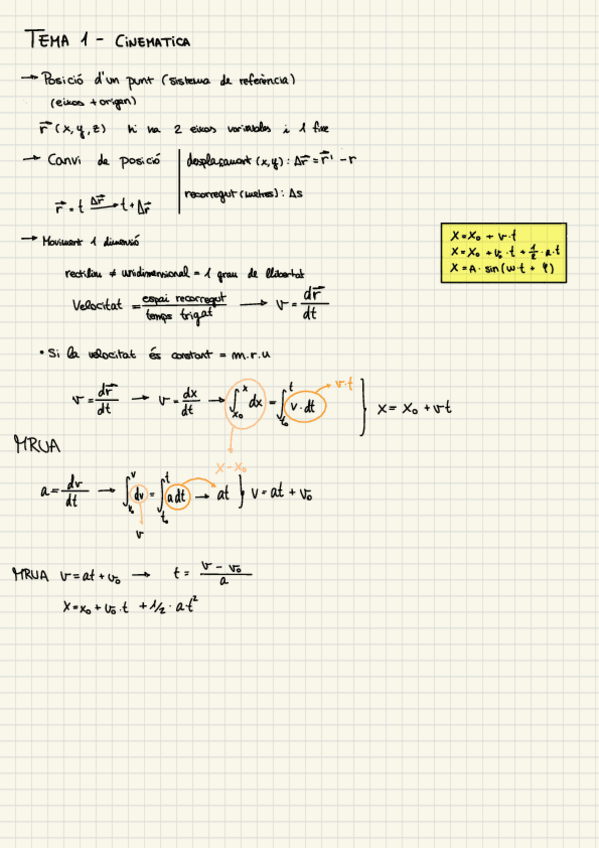 TEMA 1 - CINEMATICA
→ Posició d'un punt (sistema de referència)
(eixos + origen)
r⃗ (x, y, z) hi ha 2 eixos variables i 1 fixe
→ Canvi de posició
desplaçament (x, y) : Δr⃗ = r⃗' - r
recorregut (metres) : Δs
r⃗ = t Δr⃗→ t + Δr⃗
→ Moviment 1 dimensió
rectilini ≠ unidimensional = 1 grau de llibertat
Velocitat = espai recorregut / temps trigat → v = dr⃗/dt
X = X₀ + v·t
X = X₀ + v₀·t + 1/2·a·t
X = A·sin(wt + φ)
• Si la velocitat és constant = m.r.u
v = dr⃗/dt → v = dx/dt → ∫ₓ₀ˣ dx = ∫ₜ₀ᵗ v·dt } x = x₀ + vt
v·t
x - x₀
MRUA
a = dv/dt → ∫ᵥ dv = ∫ₜ₀ᵗ a dt → at } v = at + v₀
v
MRUA v = at + v₀ → t = v - v₀ / a
x = x₀ + v₀·t + 1/2·a·t²